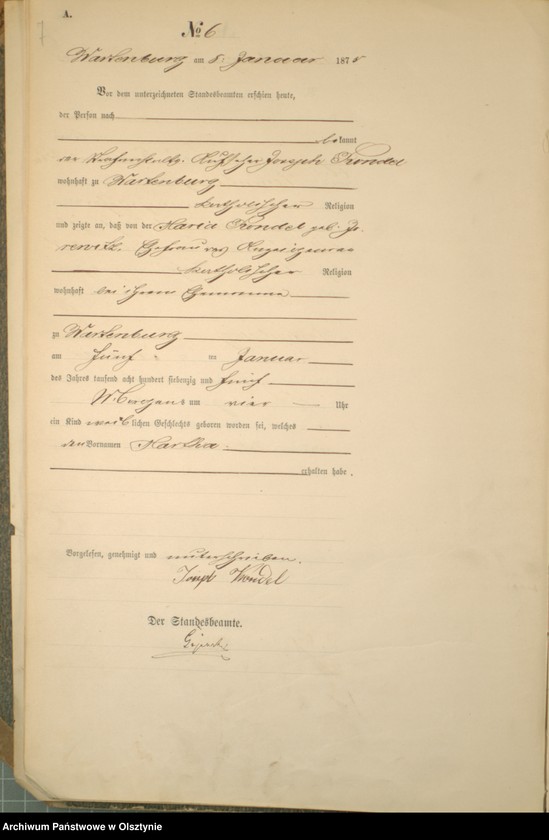 A.
7
№ 6
Wartenburg am 8. Januar 1875
Vor dem unterzeichneten Standesbeamten erschien heute,
der Person nach
bekannt
der Kutscher Joseph
wohnhaft zu Wartenburg
katholischer Religion
und zeigte an, daß von der Maria geb.
Ehefrau des
katholischer Religion
wohnhaft bei ihrem Ehemanne
zu Wartenburg
am fünf im Januar
des Jahres tausend acht hundert siebenzig und fünf
Morgens um vier Uhr
ein Kind weiblichen Geschlechts geboren worden sei, welches
den Vornamen Martha
erhalten habe.
Vorgelesen, genehmigt und unterschrieben.
Joseph
Der Standesbeamte.
Archiwum Państwowe w Olsztynie